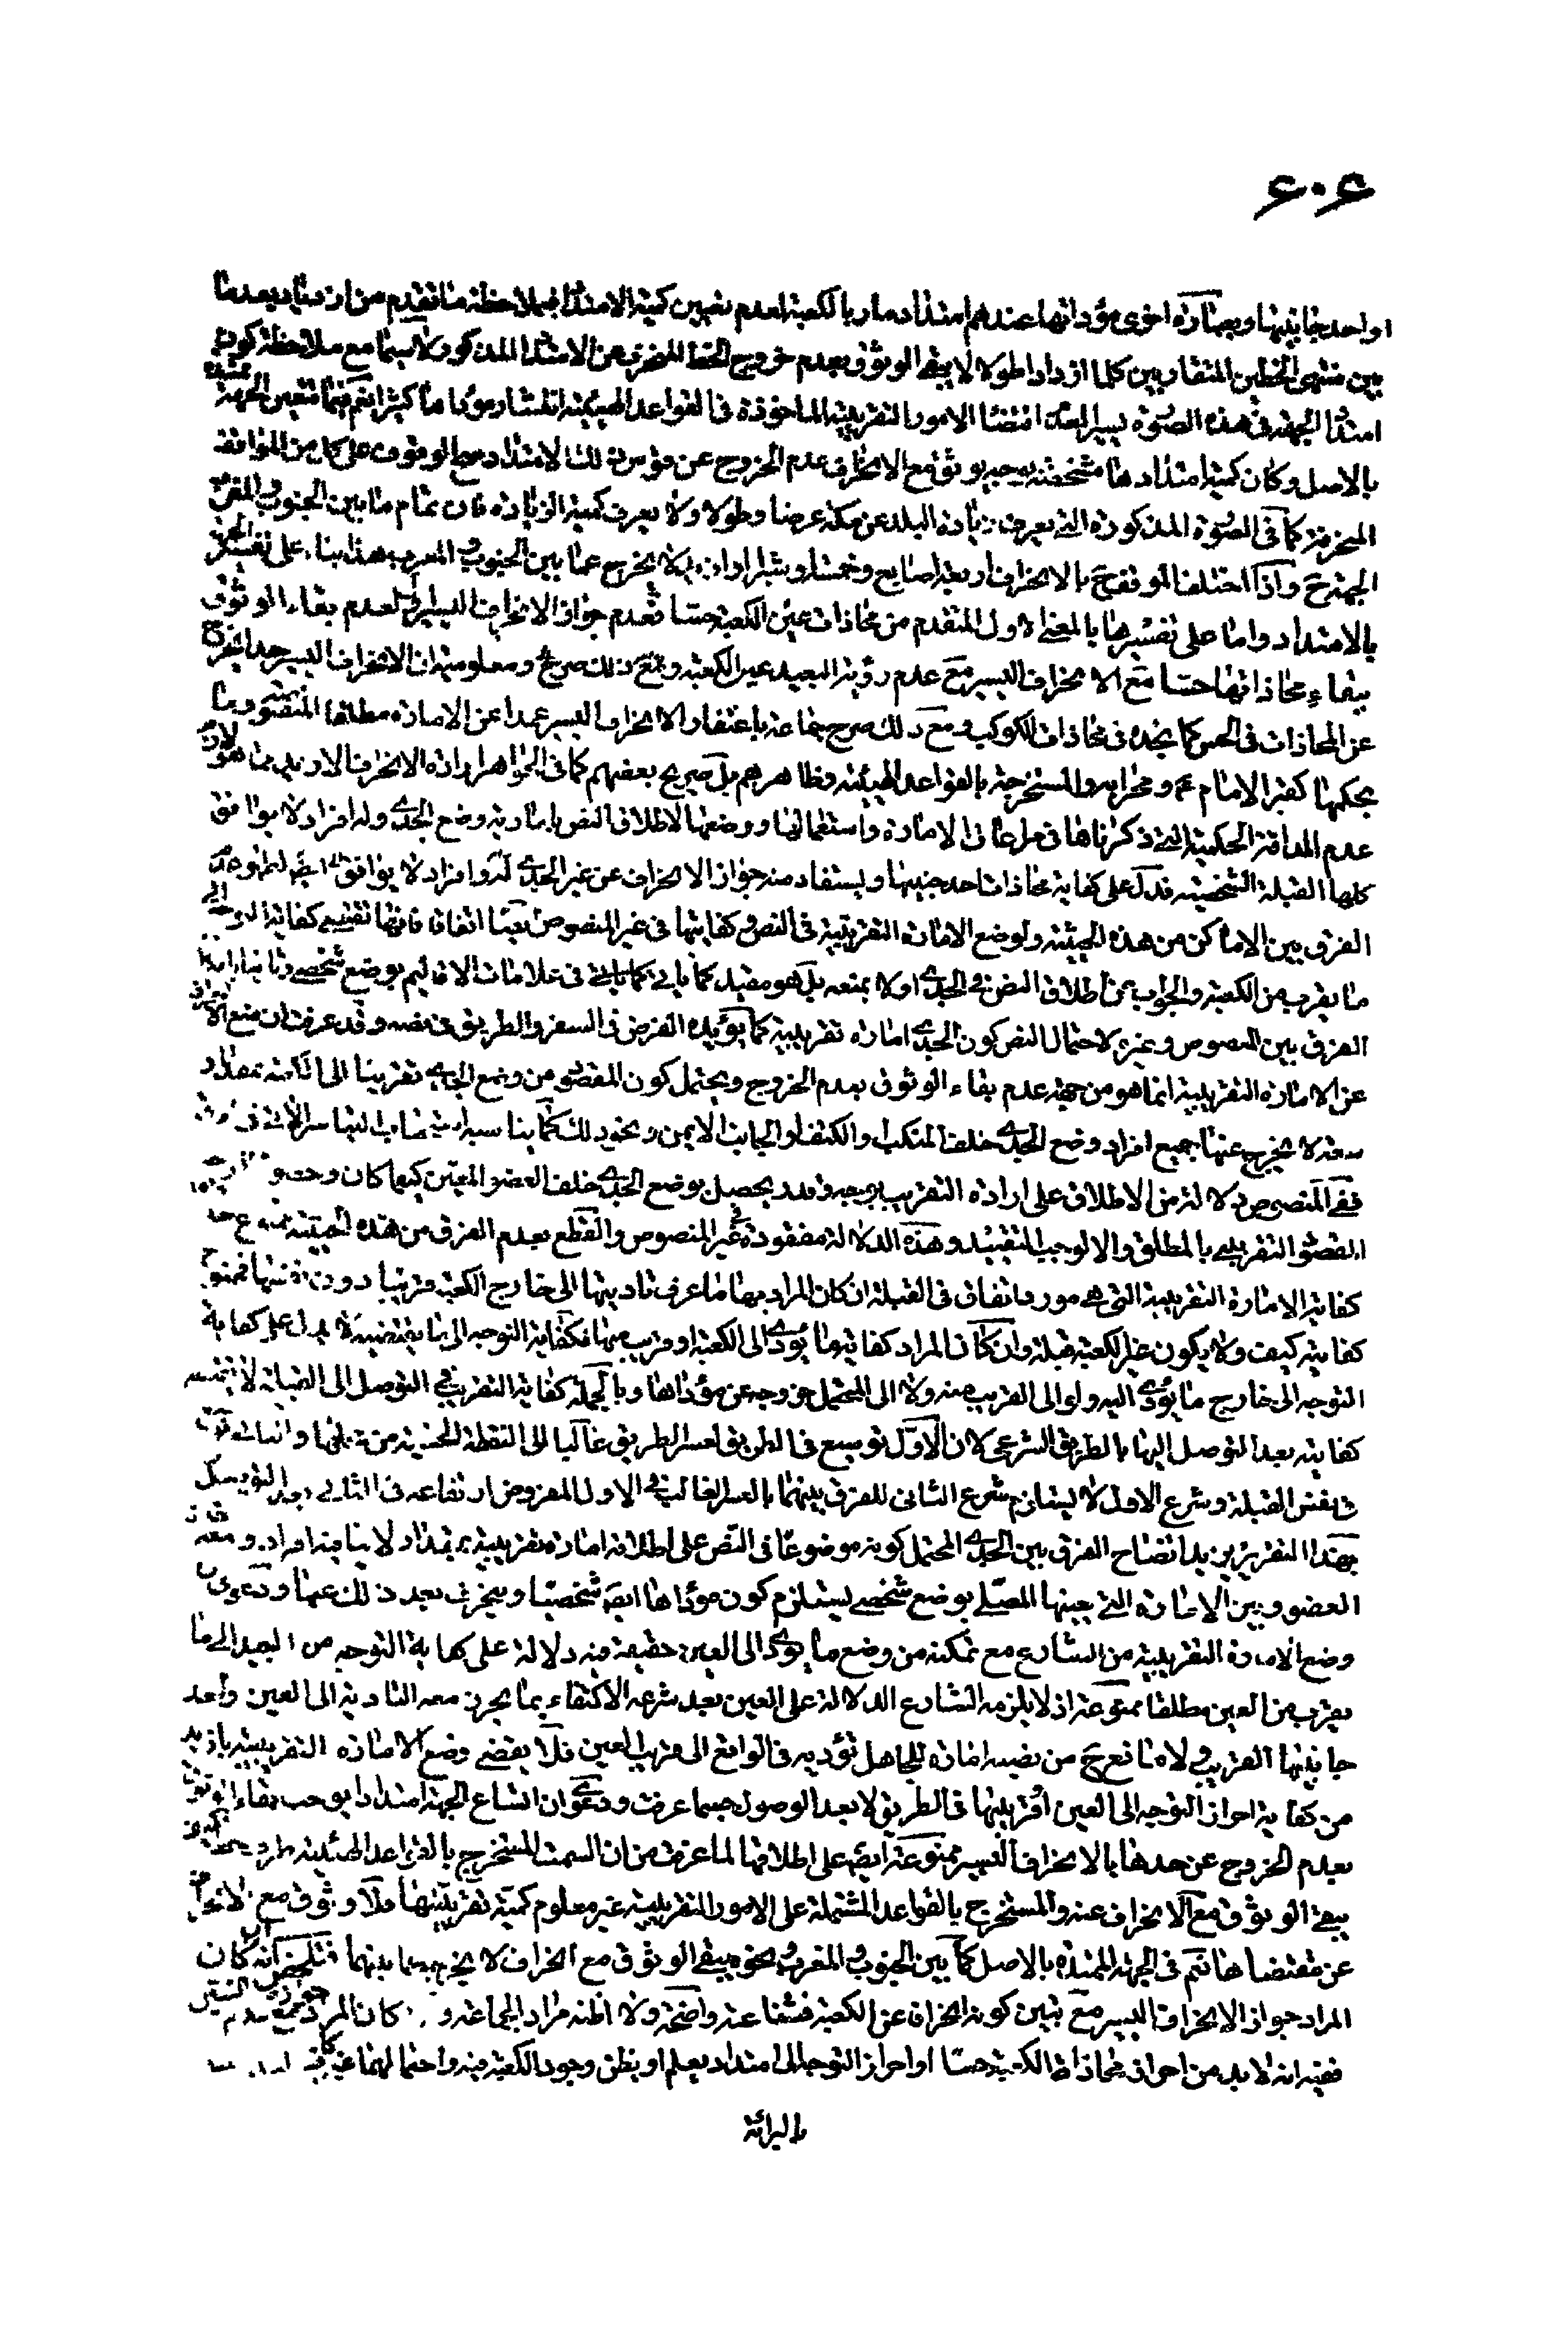 ۶۰۶
او احد جانبيها وبعبارة اخرى مؤداتها عندهم امتداد مار بالكعبة لعدم تعيين كمية الامتداد بملاحظة ما تقدم من ازدياد بعد ما
بين منتهى الخطين المتقاربين كلما ازدادا طولا لا يبقى الوثوق بعدم خروج الخط المنحرف عن الامتداد المذكور ولا سيما مع ملاحظة كون
امتداد الجهة في هذه الصورة يسيرا لعدم اقتضاء الامور التقريبية الماخوذة في القواعد الهيئية انتشار مؤداها كثيرا نعم فيما تتعين الجهة ممتدة
بالاصل وكان كمية امتدادها مشخصة بوجه يوثق مع الانحراف عدم الخروج عن قوس ذلك الامتداد صح الوقوف على كل من الموافقة
المنحرفة كما في الصورة المذكورة التي يعرف زيادة البلد عن مكة عرضا وطولا ولا يعرف كمية الزيادة فان تمام ما بين الجنوب والمغرب
الجهة ح واذا اختلف الموقف ح بالانحراف اربعة اصابع وخمسا وشبرا واد لا يخرج عما بين الجنوب والمغرب هذا بناء على تفسير الجهة
بالامتداد واما على تفسيرها بالمعنى الاول المتقدم من محاذات عين الكعبة حسا فعدم جواز الانحراف اليسير لعدم بقاء الوثوق
ببقاء محاذاتها حسا مع الانحراف اليسير مع عدم رؤية البعيد عين الكعبة ومع ذلك صريح ومعلومية ان الانحراف اليسير جدا يخرج
عن المحاذات في الحس كما نجده في محاذات الكوكب ومع ذلك صرح جماعة باغتفار الانحراف اليسير عمدا عن الامارة مطلقا المنصوصة وما
بحكمها كقبر الامام ع ومحرابه والمستخرجة بالقواعد الهيئية وظاهرهم بل صريح بعضهم كما في الجواهر ارادة الانحراف الازيد مما هو لازم
عدم المداقة الحكمية التي ذكرناها في مراعات الامارة واستعمالها ووضعها لاطلاق النص بامارية وضع الجدي وله افراد لا يوافق
كلها القبلة الشخصية فدل على كفاية محاذات احد جنبيها ويستفاد منه جواز الانحراف عن غير الجدي له افراد لا يوافق ايضا لظهور عدم
الفرق بين الاماكن من هذه الحيثية ولوضع الامارة التقريبية في النص وكفايتها في غير المنصوص تعينا اتفاقا فانها تقتضي كفاية التوجه الى
ما يقرب من الكعبة والجواب عن اطلاق النص في الجدي اولا بمنعه بل هو مقيد كما ياتي في علامات الاقاليم بوضع شخصي وثانيا بابداء
الفرق بين المنصوص وغيره لاحتمال النص كون الجدي امارة تقريبية كما يؤيده الفرض في السفر والطريق في نفسه وقد عرفت ان منع الانحراف
عن الامارة التقريبية انما هو من جهة عدم بقاء الوثوق بعدم الخروج ويحتمل كون المقصود من وضع الجدي تقريبا الى الكعبة بمقدار
سعة لا يخرج عنها جميع افراد وضع الجدي خلف المنكب والكتف او الجانب الايمن ونحو ذلك كما
ففي المنصوص دلالة من الاطلاق على ارادة التقريب بوجه وقدر يحصل بوضع الجدي خلف العضو المعين كيفما كان
المقصود التقريبي بالمطلق والا لوجب التقييد وهذه الدلالة مفقودة في غير المنصوص والقطع بعدم الفرق من هذه الحيثية
كفاية الامارة التقريبية التي هي مورد اتفاق في القبلة ان كان المراد بها ما عرف تاديتها الى خارج الكعبة قريبا دون نفسها فممنوع
كفايته كيف ولا يكون غير الكعبة قبلة وان كان المراد كفاية ما يؤدي الى الكعبة او قريب منها فكفاية التوجه الى ما يقتضيه لا يدل على كفاية
التوجه الى خارج ما يؤدي اليه ولو الى القريب منه ولا الى المحتمل خروجه عن مؤداها وبالجملة كفاية التقريب في التوصل الى القبلة لا يقتضي
كفايته بعد التوصل اليها بالطريق الشرعي لان الاول توسيع في الطريق لعسر الطريق غالبا الى النقطة الحقيقية من قبلتها والثاني
في نفس القبلة وشرع الاول لا يستلزم شرع الثاني للفرق بينهما بالعسر الغالب في الاول المفروض ارتفاعه في الثاني
بهذا التقرير يزيد اتضاح الفرق بين الجدي المحتمل كونه موضوعا في النص على اطلاقه امارة تقريبية بمقدار لا ينافيه افراد
العضو وبين الامارة التي يعينها المصلي بوضع شخصي يستلزم كون مؤداها ايضا شخصيا وينحرف بعد ذلك عنها ودعوى ان
وضع الامارة التقريبية من الشارع مع تمكنه من وضع ما يؤدي الى العين حقيقة فيه دلالة على كفاية التوجه من البعيد الى ما
يقرب من العين مطلقا ممنوعة اذ لا يلزمه الشارع الدلالة على العين بعد شرعه الاكتفاء بما يحرز معه التادية الى العين واحد
جانبيها القريب ولا مانع ح من نصبه امارة للجاهل تؤديه في الواقع الى قريب العين فلا يقضي وضع الامارة التقريبية بازيد
من كفاية احراز التوجه الى العين او قريبها في الطريق لا بعد الوصول حسبما عرفت ودعوى ان اتساع الجهة امتدادا يوجب بقاء الوثوق
بعدم الخروج عن حدها بالانحراف اليسير ممنوعة ايضا على اطلاقها لما عرفت من ان السمت المستخرج بالقواعد الهيئية
يبقى الوثوق مع الانحراف عنه والمستخرج بالقواعد المشتملة على الامور التقريبية غير معلوم كمية تقريبيتها فلا وثوق مع الانحراف
عن مقتضاها نعم في الجهة الممتدة بالاصل كما بين الجنوب والمغرب ونحوه يبقى الوثوق مع انحراف لا يخرج عما بينهما فتلخص انه ان كان
المراد جواز الانحراف اليسير مع تبين كونه انحرافا عن الكعبة فشناعته واضحة ولا اظنه مراد الجماعة و كان المراد
ففيه انه لا بد من احراز محاذاة الكعبة حسا او احراز التوجه الى امتداد يعلم او يظن وجود الكعبة فيه واحتمالهما غير كاف
والبرائة